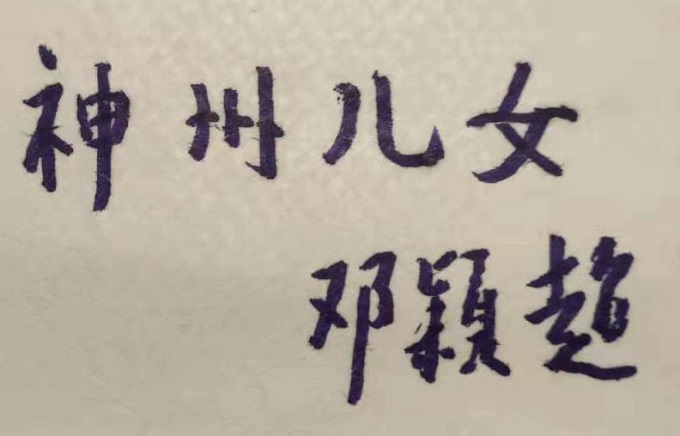 神州儿女
邓颖超